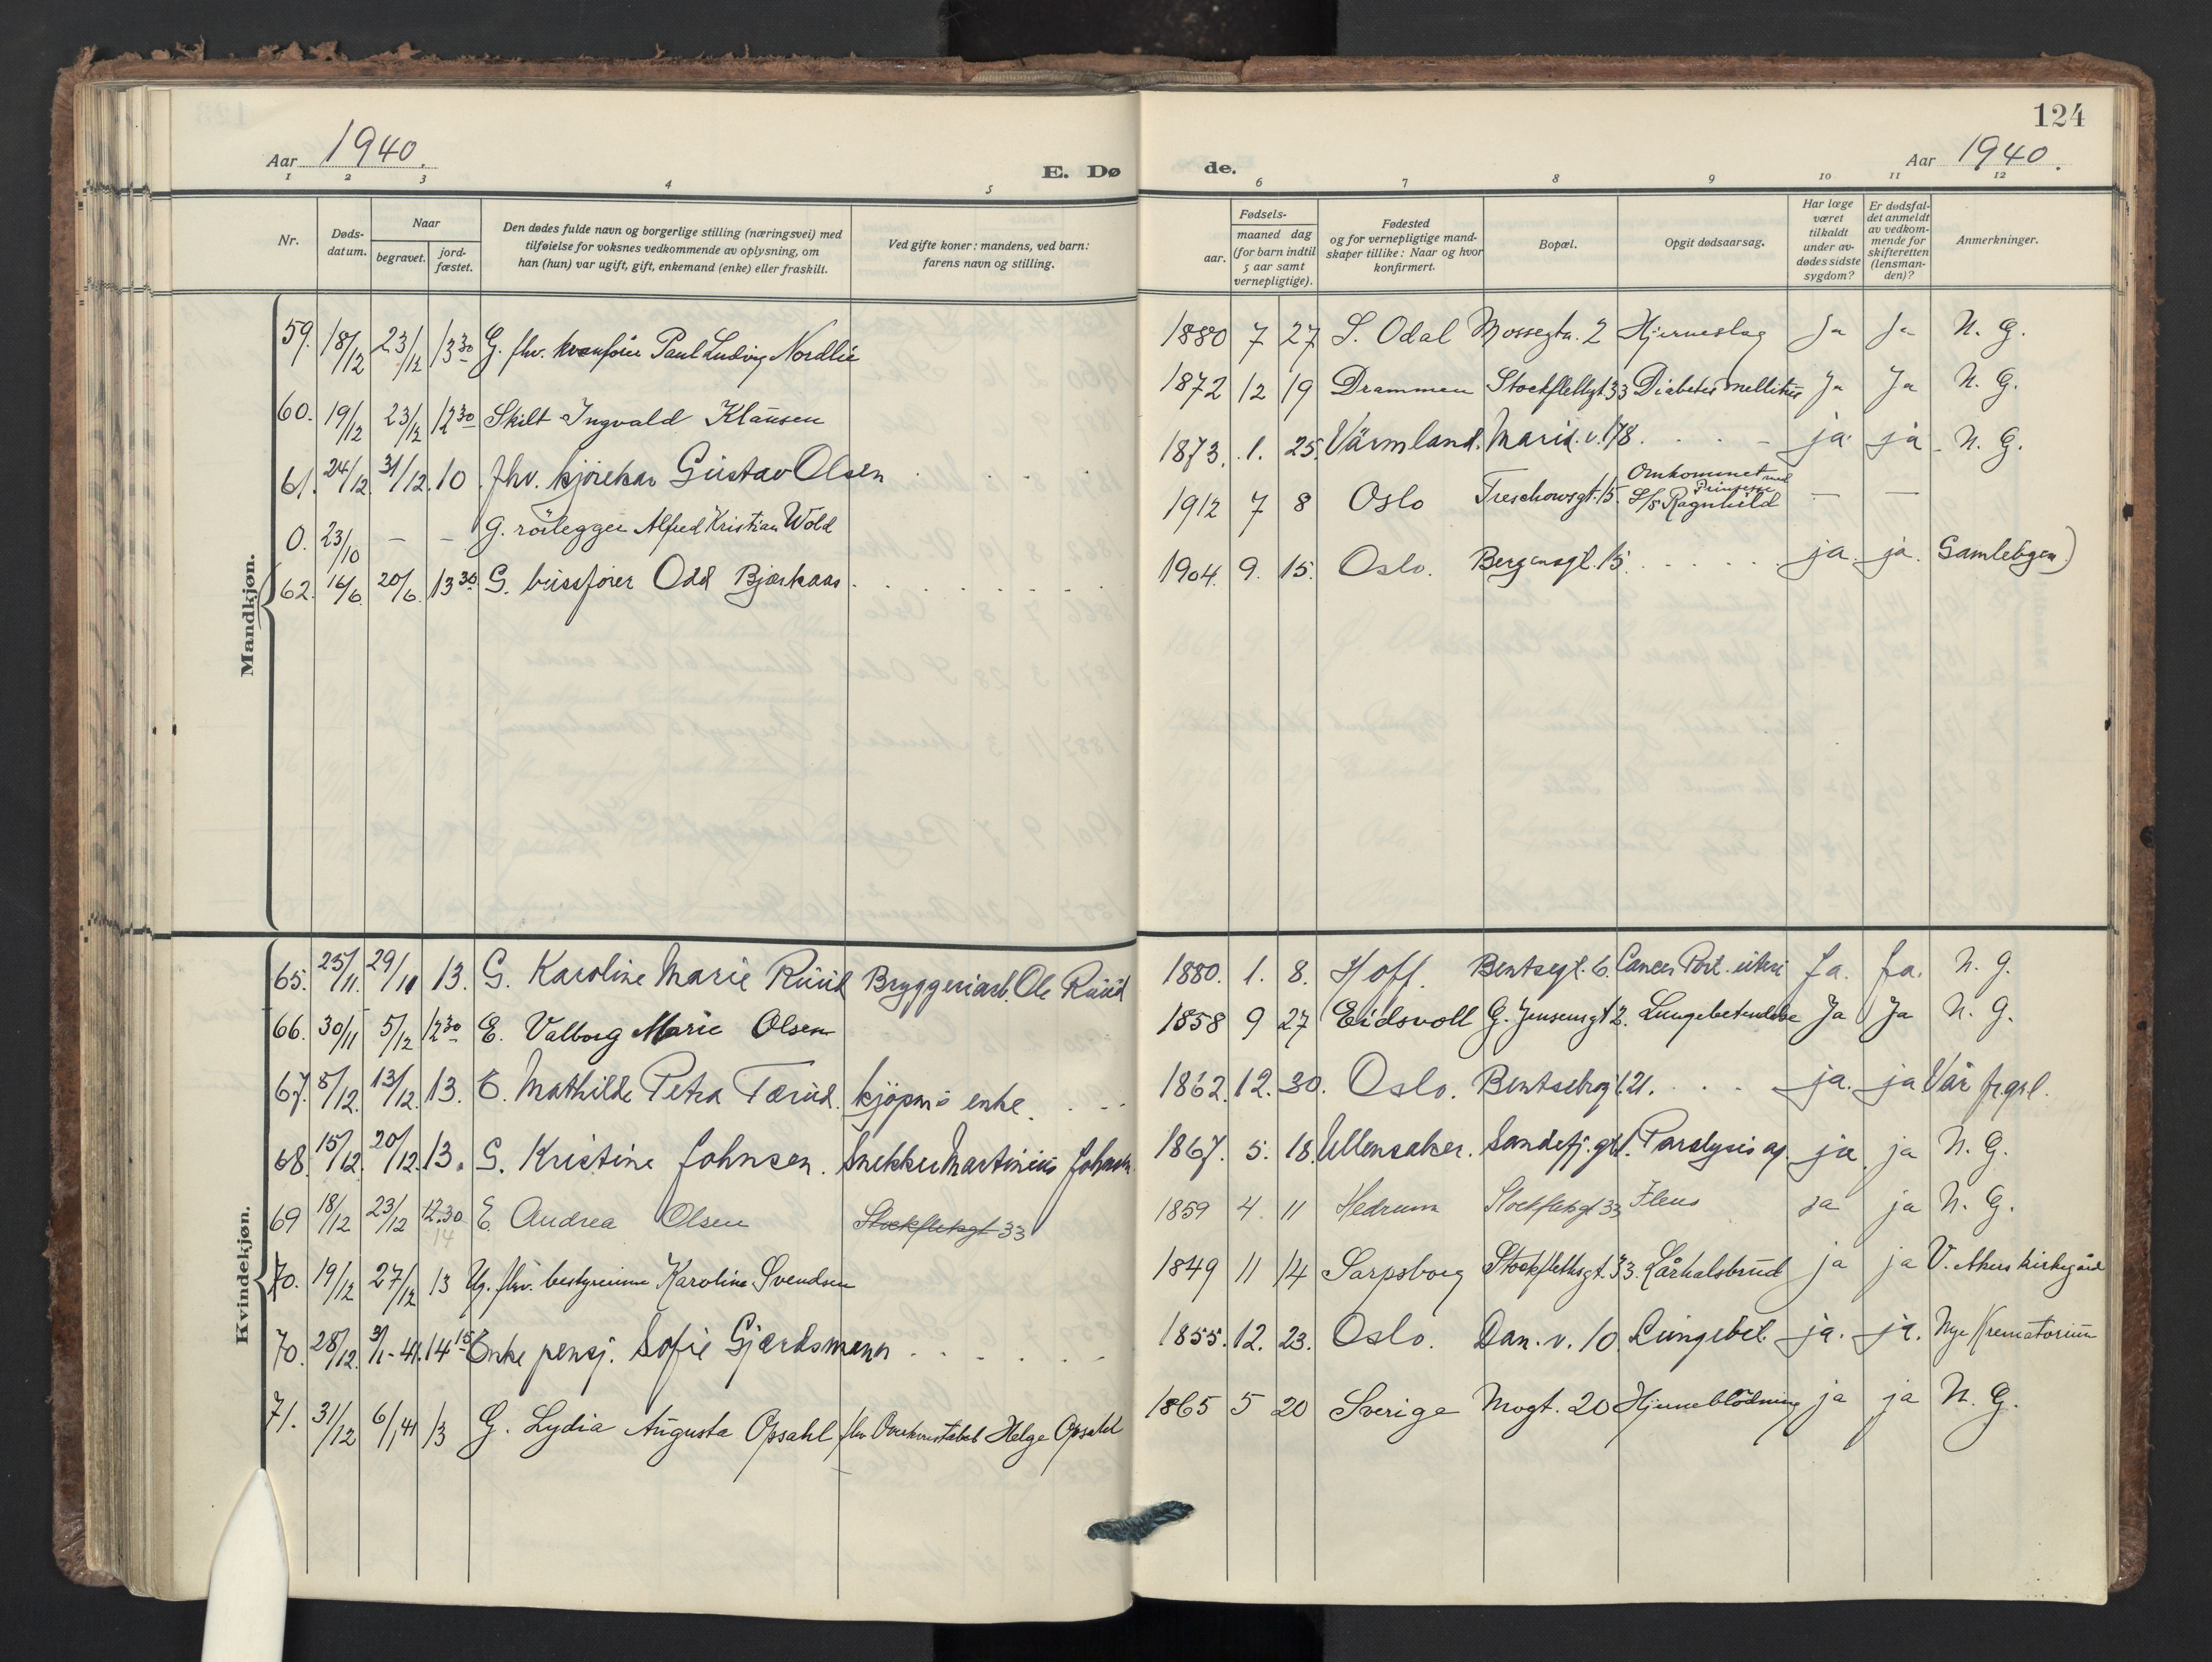 124
Aar 1940.
E. Døde.
Aar 1940.
1 2 3 4 5 6 7 8 9 10 11 12
Nr.
Døds-datum.
Naar
begravet.
jord-fæstet.
Den dødes fulde navn og borgerlige stilling (næringsvei) med
tilføielse for voksnes vedkommende av oplysning, om
han (hun) var ugift, gift, enkemand (enke) eller fraskilt.
Ved gifte koner: mandens, ved barn:
farens navn og stilling.
Fødsels-
aar.
maaned dag
(for barn indtil
5 aar samt
vernepligtige).
Fødested
og for vernepligtige mand-
skaper tillike: Naar og hvor
konfirmert.
Bopæl.
Opgit dødsaarsag.
Har læge
været
tilkaldt
under av-
dødes sidste
sygdom?
Er dødsfal-
det anmeldt
av vedkom-
mende for
skifteretten
(lensman-
den)?
Anmerkninger.
Mandkjøn.
59. 18/12 23/12 13 30 G. fhv. Paul Ludvig Nordlie 1880 7 27 S. Odal Mossegtn. 2 Hjerneslag Ja Ja N. G.
60. 19/12 23/12 12 30 Skilt Ingvald Klausen 1872 12 19 Drammen Stockfletsgt 33 Diabetes mellitus Ja Ja N. G.
61. 24/12. 31/12. 10 fhv. kjörekar Gustav Olsen 1873. 1. 25. Värmland. Marid. v. 178. ja ja N. G.
0. 23/10 — — G. rörlegger Alfred Kristian Wold 1912 7 8 Oslo Treschowsgt. 15. Omkommet med S/S Prinsesse Ragnhild — —
62. 16/6. 20/6. 13 30. G. bussförer Odd Bjerkaas 1904. 9. 15. Oslo. Bergensgt. 15. ja. ja. Gamlebyen)
Kvindekjøn.
65. 25/11. 29/11 13. G. Karoline Marie Ruud Bryggeriarb. Ole Ruud 1880. 1. 8. Hoff. Bentsegt. 6. Cancer Port. uteri Ja. Ja. N. G.
66. 30/11 5/12 12 30 E. Valborg Marie Olsen 1858 9 27 Eidsvoll G. Jensensgt 2. Lungebetendelse Ja Ja N. G.
67. 8/12. 13/12. 13. E. Mathilde Petra Tærud. kjöpm's enke. 1862. 12. 30. Oslo. Bentsebrogt 21. ja. ja Vår fr.grl.
68. 15/12. 20/12. 13. G. Kristine Johnsen. Snekker Martinius Johnsen 1867. 5. 18. Ullensaker. Sandefj. gt 1. Paralysis ag ja ja N. G.
69 18/12 23/12 12.30 14 E. Andrea Olsen Stockfletsgt 33 1859 4. 11 Hedrum Stockfletsgt 33 Ileus ja ja N. G.
70. 19/12 27/12 13 Ug. fhv. bestyrerinne Karoline Svendsen 1849 11 14 Sarpsborg Stockflethsgt. 33. Lårhalsbrud ja ja V. Akers kirkegård
70. 28/12. 3/1-41. 14 15 Enke pensj. Sofie Gjerdsmann 1855. 12. 23. Oslo. Dan. v. 10. Lungebet. ja. ja. Nye Krematorium
71. 31/12 6/1 41 13 G. Lydia Augusta Opsahl fhv Overkonstabel Helge Opsahl 1865 5 20 Sverige Mogt. 20 Hjerneblödning ja ja N. G.